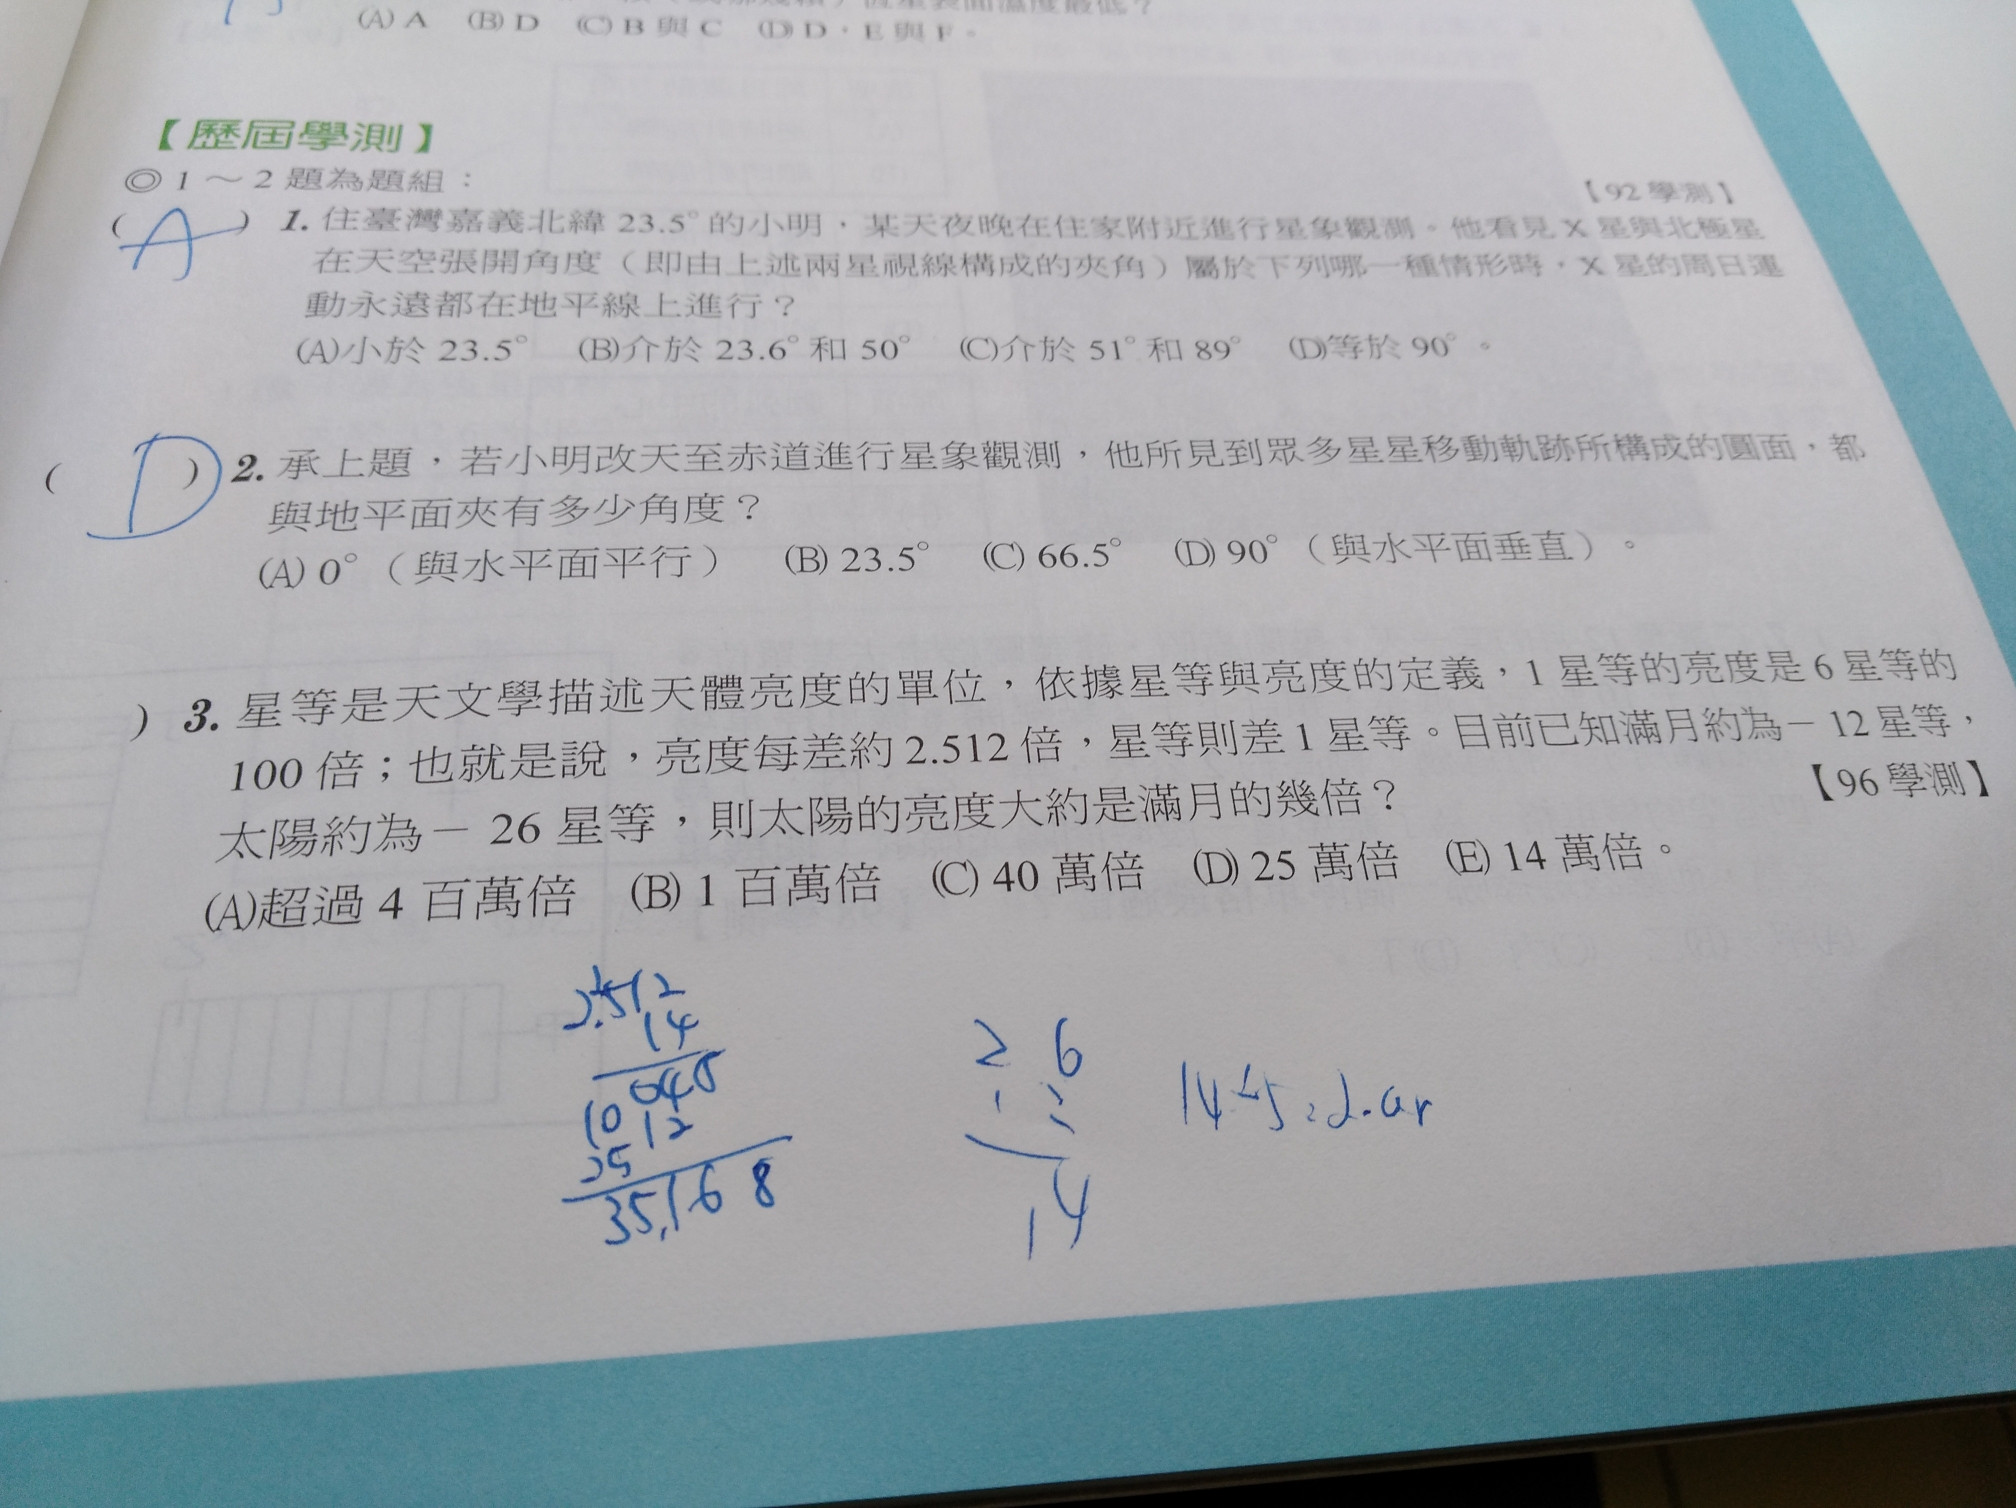 (A) A (B) D (C) B 與 C (D) D、E 與 F。
【歷屆學測】
◎ 1～2 題為題組： 【92 學測】
( A ) 1. 住臺灣嘉義北緯 23.5° 的小明，某天夜晚在住家附近進行星象觀測。他看見 X 星與北極星
在天空張開角度（即由上述兩星視線構成的夾角）屬於下列哪一種情形時，X 星的周日運
動永遠都在地平線上進行？
(A)小於 23.5° (B)介於 23.6° 和 50° (C)介於 51° 和 89° (D)等於 90°。
( D ) 2. 承上題，若小明改天至赤道進行星象觀測，他所見到眾多星星移動軌跡所構成的圓面，都
與地平面夾有多少角度？
(A) 0°（與水平面平行） (B) 23.5° (C) 66.5° (D) 90°（與水平面垂直）。
) 3. 星等是天文學描述天體亮度的單位，依據星等與亮度的定義，1 星等的亮度是 6 星等的
100 倍；也就是說，亮度每差約 2.512 倍，星等則差 1 星等。目前已知滿月約為－ 12 星等，
太陽約為－ 26 星等，則太陽的亮度大約是滿月的幾倍？ 【96 學測】
(A)超過 4 百萬倍 (B) 1 百萬倍 (C) 40 萬倍 (D) 25 萬倍 (E) 14 萬倍。
2.512
14
10 048
25 12
35.168
26
12
14